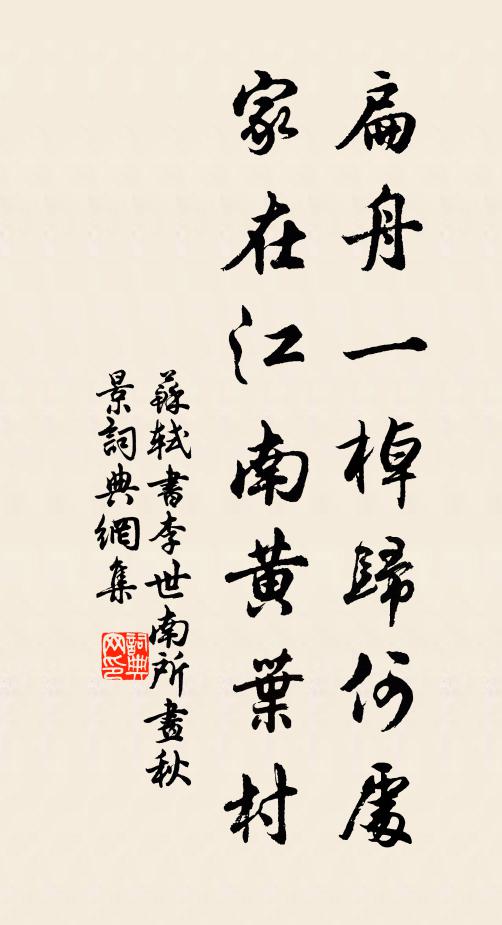 扁舟一棹歸何處
家在江南黃葉村
蘇軾書李世南所畫秋
景詞典網集
詞典
网印